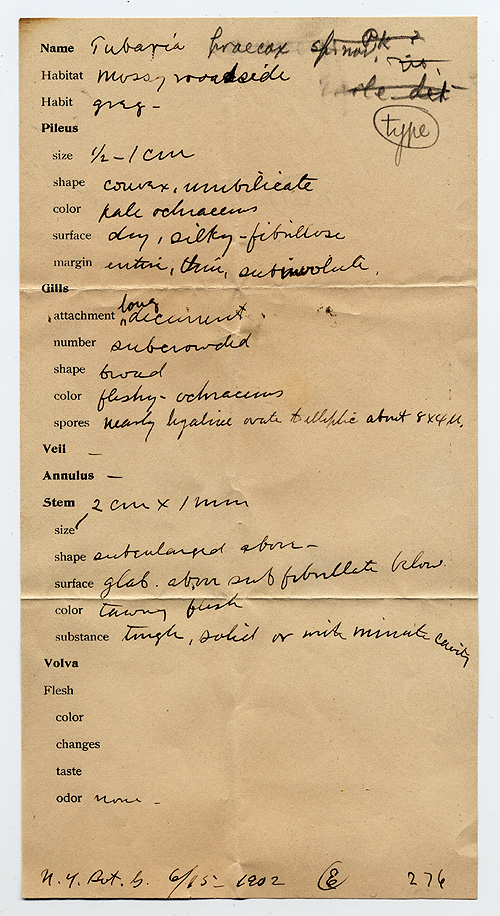 Name Tubaria praecox Pk ?
Habitat Mossy roadside
Earle det
Habit greg –
type
Pileus
size ½ – 1 cm
shape convex, umbilicate
color pale ochraceous
surface dry, silky-fibrillose
margin entire, thin, subinvolute.
Gills
long
attachment decurrent
number subcrowded
shape broad
color fleshy-ochraceous
spores nearly hyaline ovate to elliptic about 8x4 µ.
Veil –
Annulus –
Stem 2 cm x 1 mm
size
shape subenlarged above –
surface glab. above subfibrillate below
color tawny flesh
substance tough, solid or with minute cavity
Volva
Flesh
color
changes
taste
odor none –
N. Y. Bot. G. 6/15 – 1902 E 276